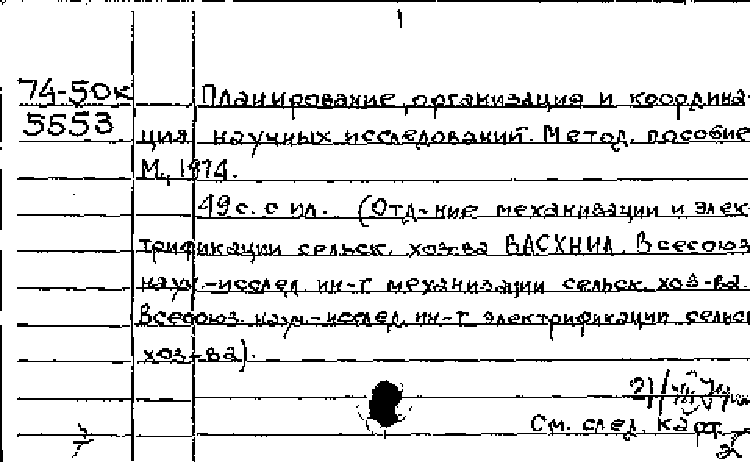 1
74-50к Планирование, организация и координа-
5553 ция научных исследований. Метод. пособие
М., 1974.
49 с. с ил. (Отд-ние механизации и элек-
трификации сельск. хоз-ва ВАСХНИЛ. Всесоюз
науч.-исслед. ин-т механизации сельск. хоз-ва.
Всесоюз. науч.-исслед. ин-т электрификации сельс
хоз-ва).
См. след. карт.
2